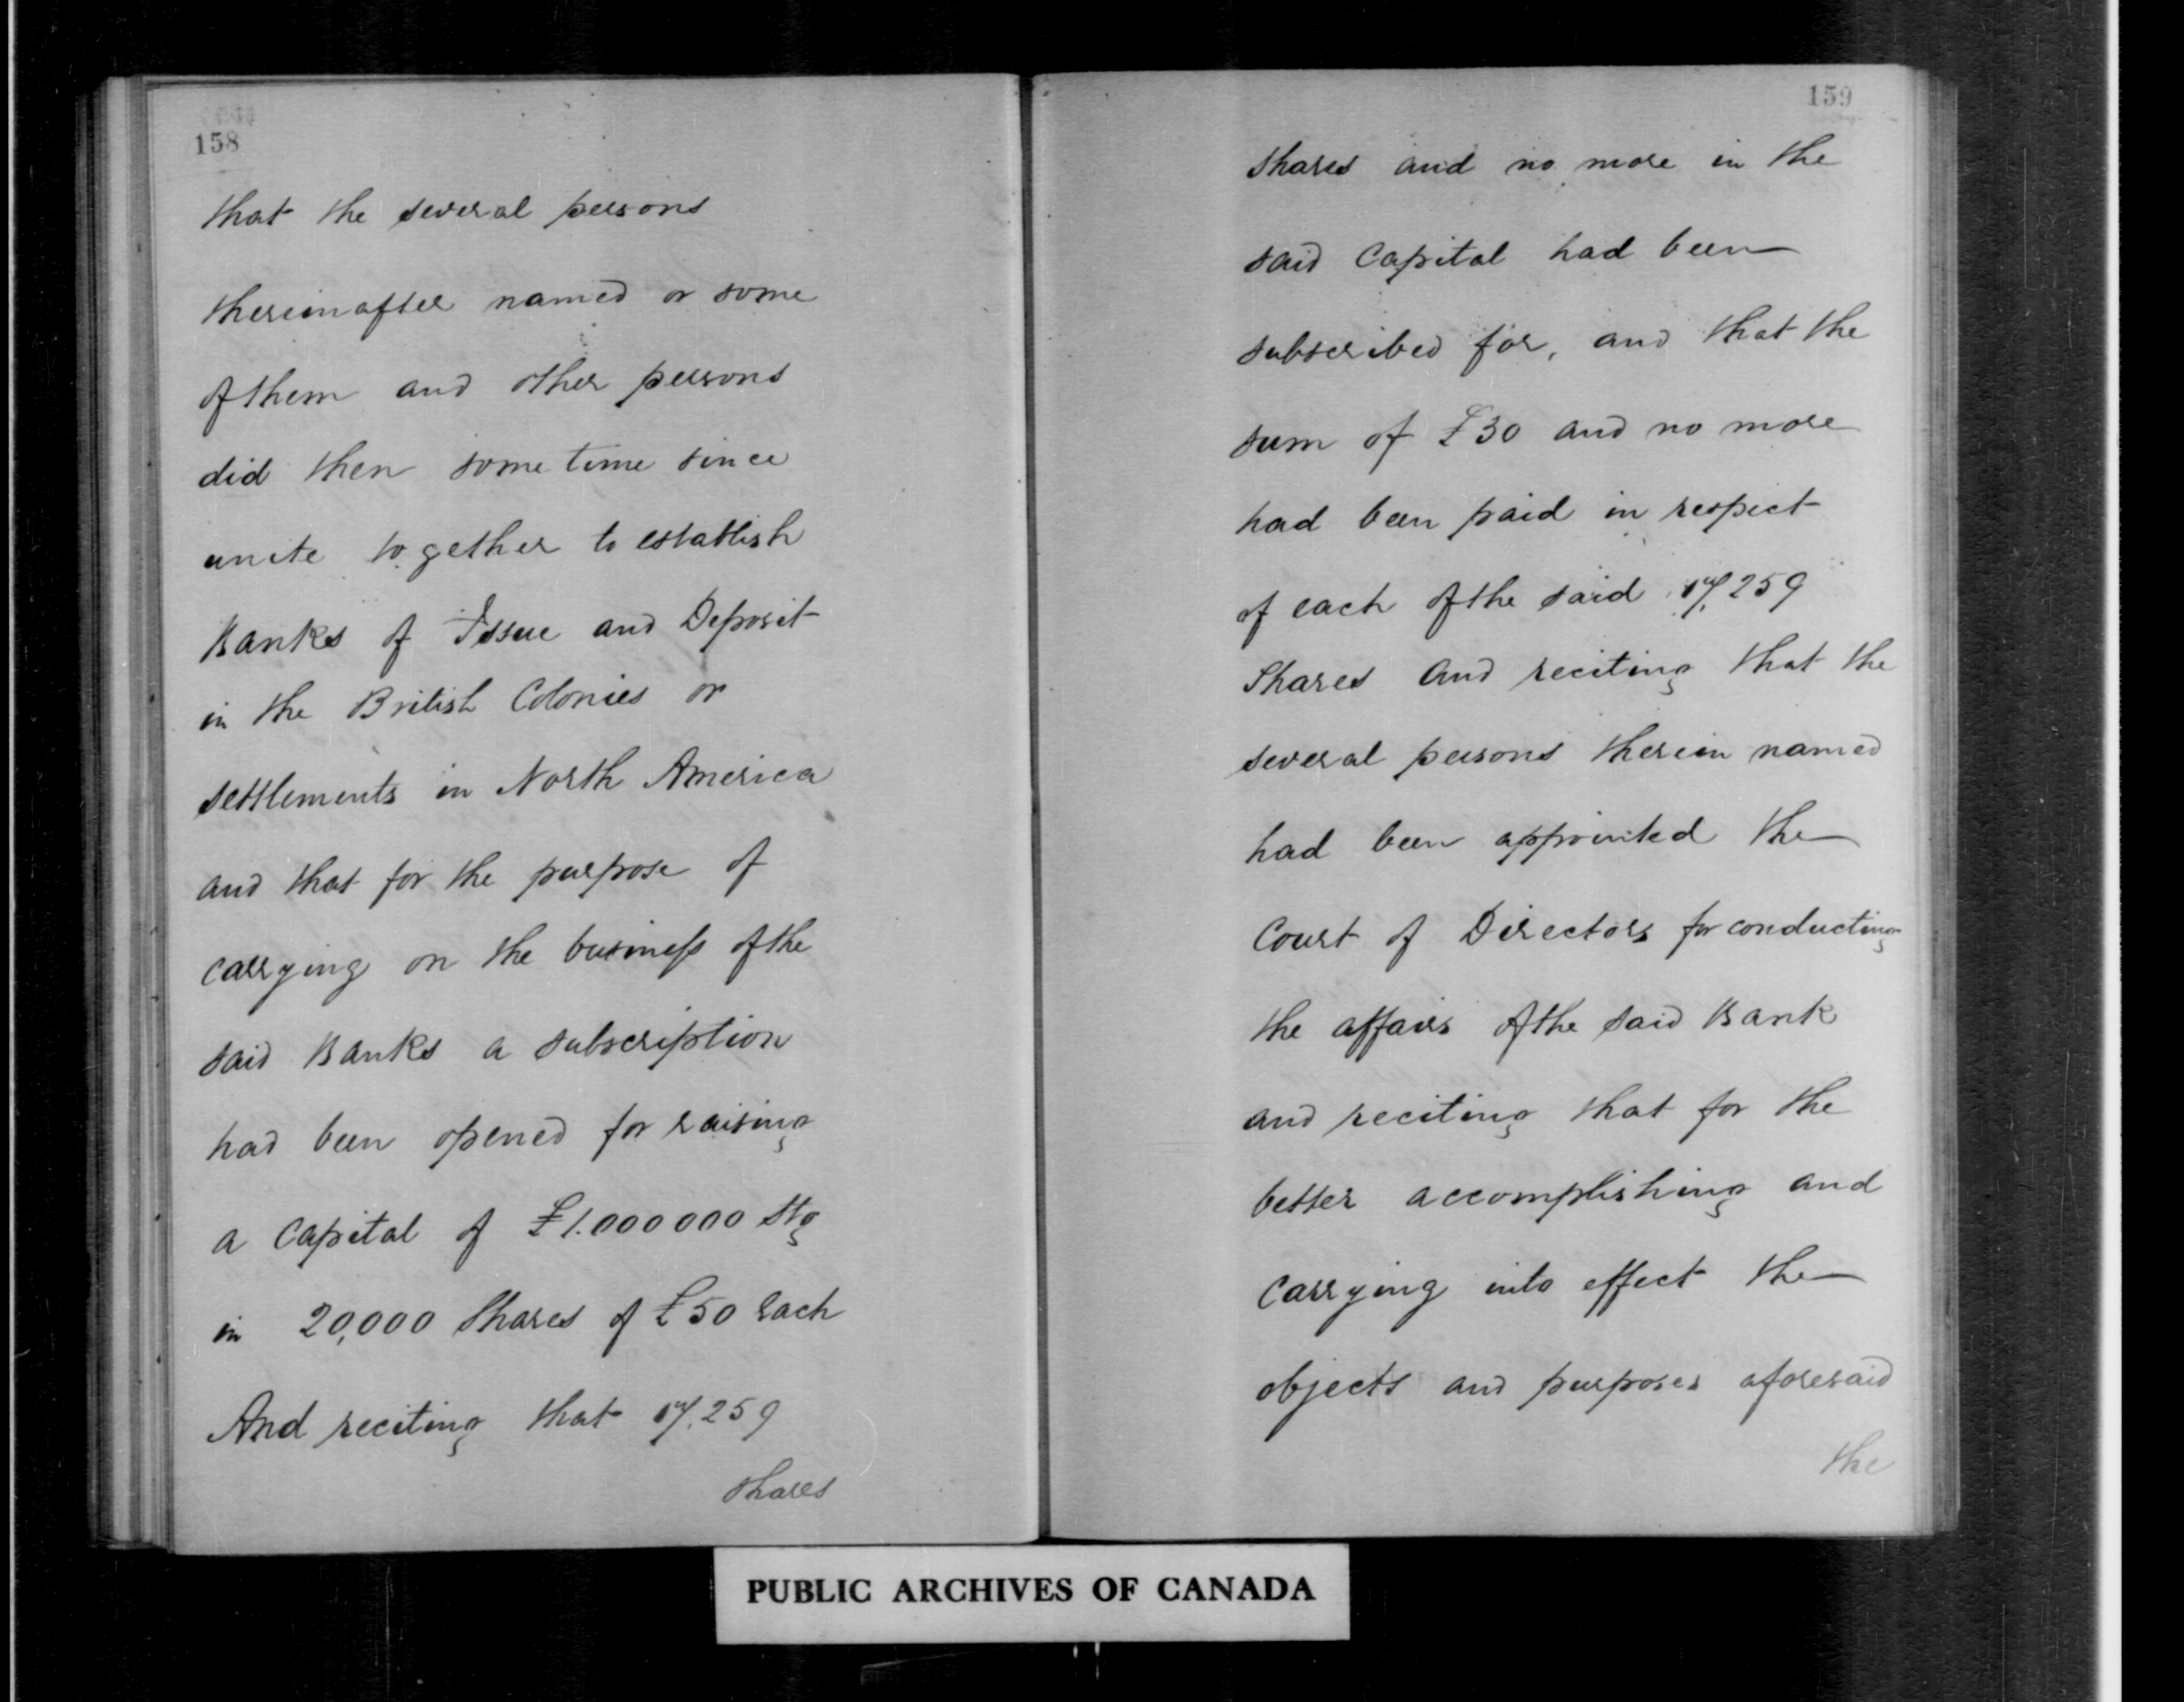 158
that the several persons
thereinafter named or some
of them and other persons
did then some time since
unite together to establish
Banks of Issue and Deposit
in the British Colonies or
settlements in North America
and that for the purpose of
carrying on the business of the
said Banks a subscription
had been opened for raising
a Capital of £1.000000 Stg
in 20,000 Shares of £50 each
And reciting that 17,259
shares
159
shares and no more in the
said Capital had been
subscribed for, and that the
sum of £30 and no more
had been paid in respect
of each of the said 17,259
Shares and reciting that the
several persons therein named
had been appointed the
Court of Directors for conducting
the affairs of the said Bank
and reciting that for the
better accomplishing and
carrying into effect the
objects and purposes aforesaid
the
PUBLIC ARCHIVES OF CANADA